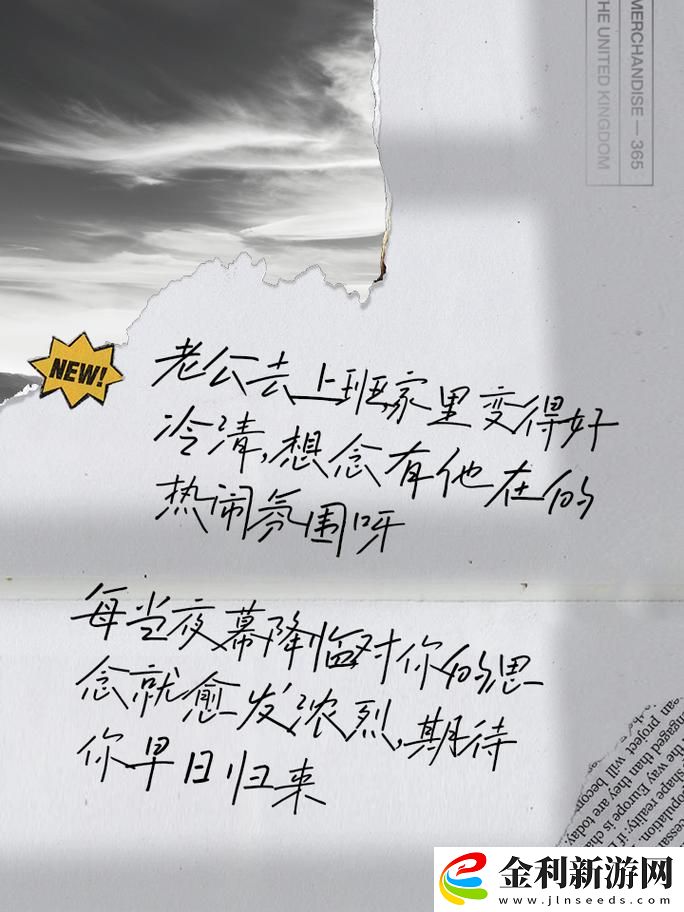 MERCHANDISE — 365
THE UNITED KINGDOM
NEW!
老公去上班家里变得好
冷清,想念有他在的
热闹氛围呀
每当夜幕降临对你的思
念就愈发浓烈,期待
你早日归来
engaged than they are today.
project will becom
shape reality: if
the way Europe is cha
金利新游网
www.jlnseeds.com